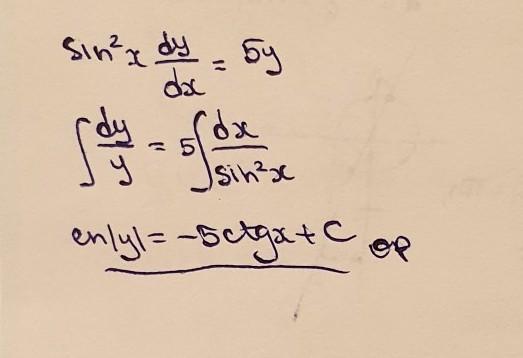 sin²x dy/dx = 5y
∫ dy/y = 5∫ dx/sin²x
ln|y| = -5ctgx + C